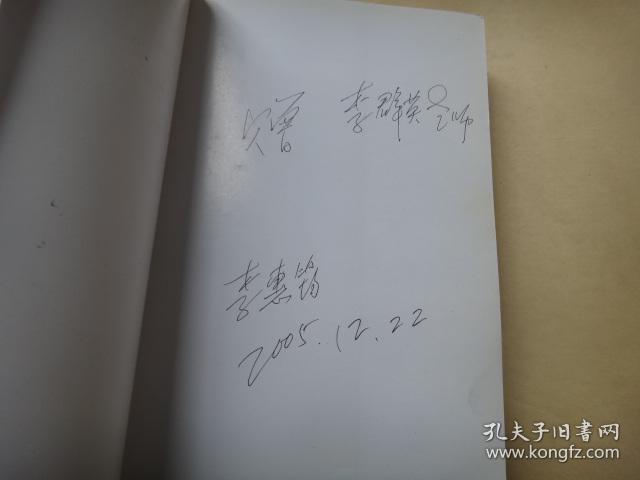 赠 李群英老师
李惠筠
2005.12.22
孔夫子旧书网
www.kongfz.com